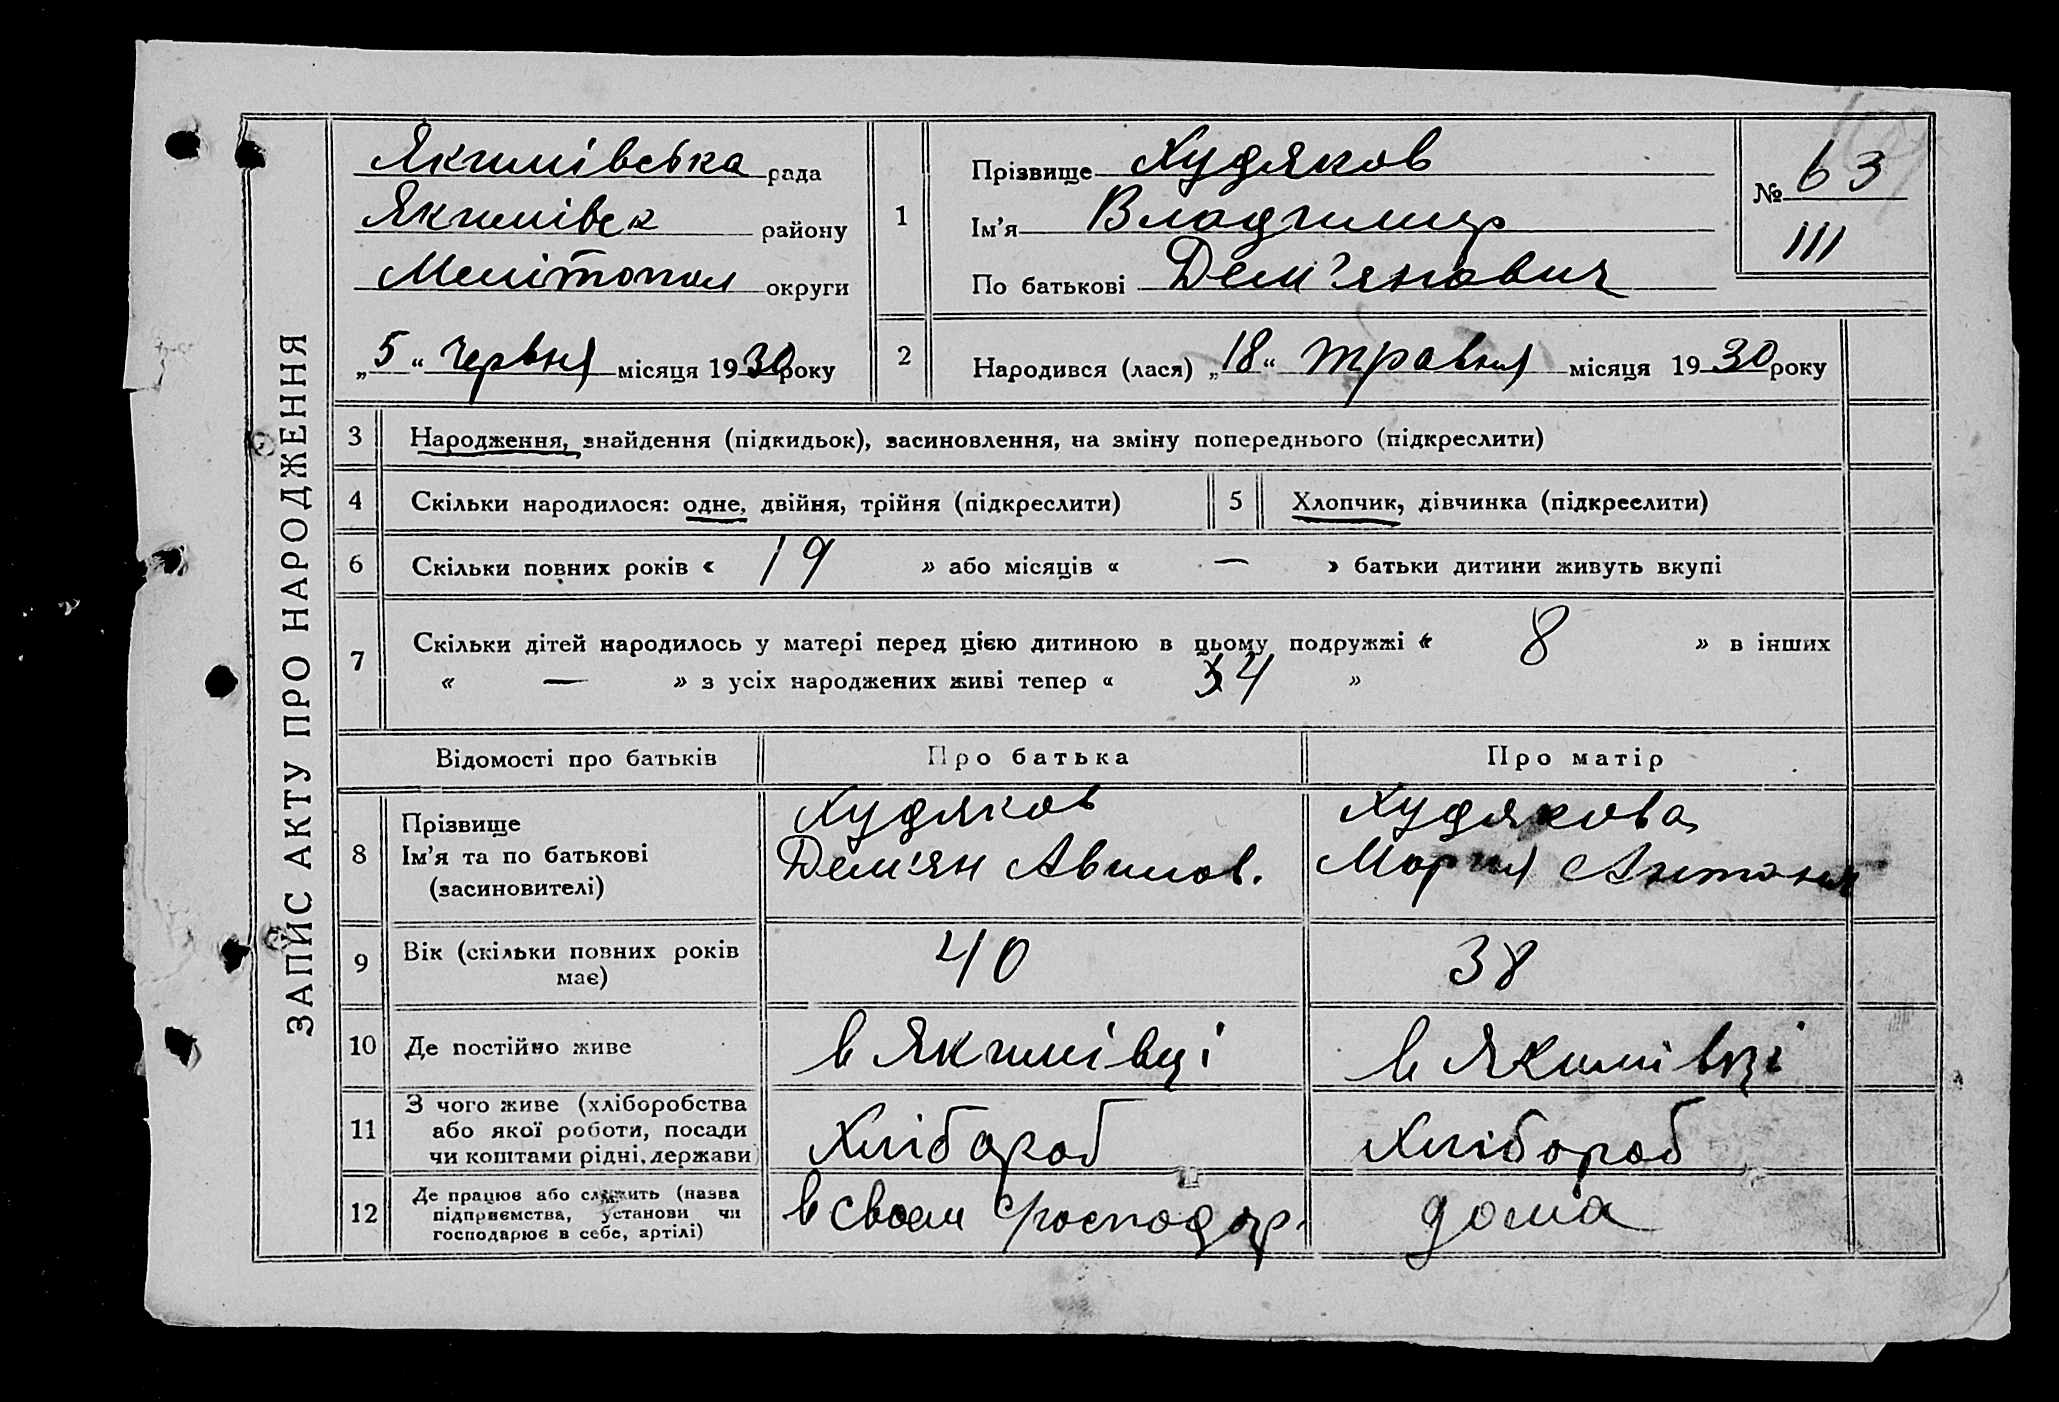 ЗАПИС АКТУ ПРО НАРОДЖЕННЯ
Якимівська рада
Якимівск району
Мелітопол округи
„ 5 “ червня місяця 1930 року
1
Прізвище Худяков
Ім'я Владимир
По батькові Дем'янович
№ 63
III
2
Народився (лася) „ 18 “ травня місяця 1930 року
3 Народження, знайдення (підкидьок), засиновлення, на зміну попереднього (підкреслити)
4 Скільки народилося: одне, двійня, трійня (підкреслити)
5 Хлопчик, дівчинка (підкреслити)
6 Скільки повних років « 19 » або місяців « — » батьки дитини живуть вкупі
7 Скільки дітей народилось у матері перед цією дитиною в цьому подружжі « 8 » в інших
« — » з усіх народжених живі тепер « 4 »
Відомості про батьків
Про батька
Про матір
8
Прізвище
Ім'я та по батькові
(засиновителі)
Худяков
Дем'ян Авилов.
Худякова
Мария Антоня
9
Вік (скільки повних років
має)
40
38
10 Де постійно живе
в Якимівці
в Якимівці
11
З чого живе (хліборобства
або якої роботи, посади
чи коштами рідні, держави)
Хлібороб
Хлібороб
12
Де працює або служить (назва
підприємства, установи чи
господарює в себе, артілі)
в своем господар.
дома